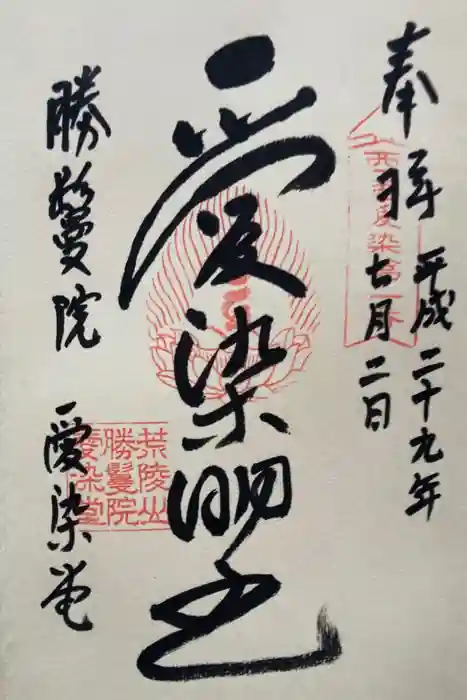 奉拝
平成二十九年
七月二日
愛染明王
勝鬘院
愛染堂
荒陵山
勝鬘院
愛染堂